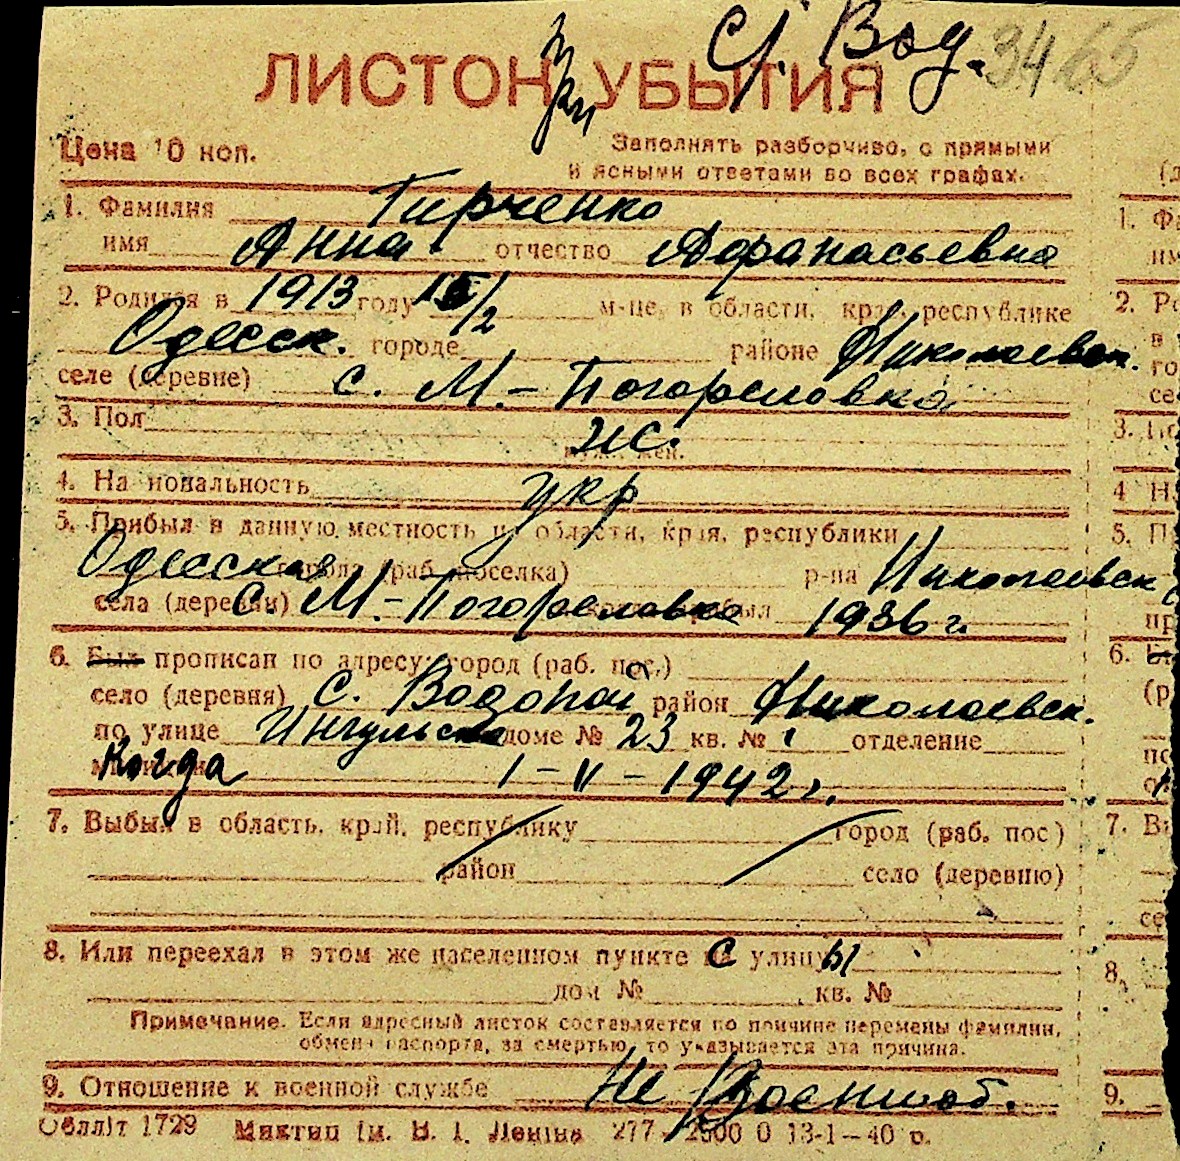 С. Вод. 3465
ЛИСТОК УБЫТИЯ
Цена 10 коп.
Заполнять разборчиво, с прямыми
и ясными ответами во всех графах.
1. Фамилия Гирченко
имя Анна отчество Афанасьевна
2. Родился в 1913 году 15/2 м-це, в области, крае, республике
Одесск. городе районе Николаевск.
селе (деревне) с. М.-Погореловка
3. Пол ж.
жен.
4. Национальность укр
5. Прибыл в данную местность из области, края, республики
Одесская города (раб. поселка) р-на Николаевск
села (деревни) с. М.-Погореловка прибыл 1936 г.
6. Был прописан по адресу: город (раб. пос.)
село (деревня) с. Водопой район Николаевск.
по улице Ингульская доме № 23 кв. № 1 отделение
Когда 1-V-1942 г.
7. Выбыл в область, край, республику город (раб. пос)
район село (деревню)
8. Или переехал в этом же населенном пункте с улицы
дом № кв. №
Примечание. Если адресный листок составляется по причине перемены фамилии,
обмена паспорта, за смертью, то указывается эта причина.
9. Отношение к военной службе Не военнооб.
Облліт 1729 Миктип ім. В. І. Леніна 277-2500 0 13-1-40 р.
1. Фа
им
2. Ро
в
го
се
3. По
4 На
5. Пр
пр
6. Б
(р
по
7. Вы
се
8.
9.